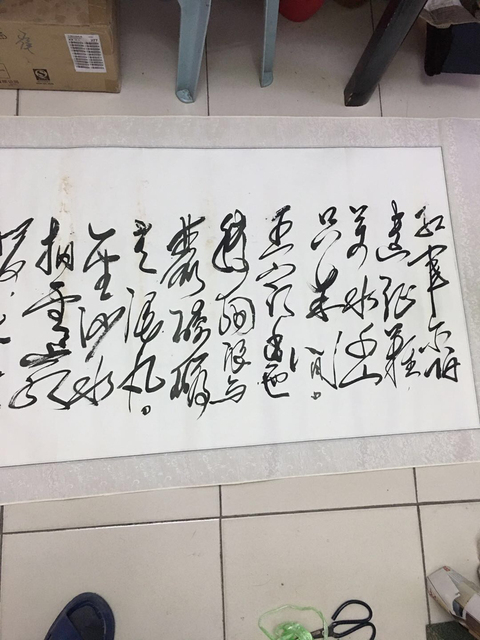 红军不怕
远征难
万水千山
只等闲
五岭逶迤
腾细浪乌
蒙磅礴
走泥丸
金沙水
拍云崖